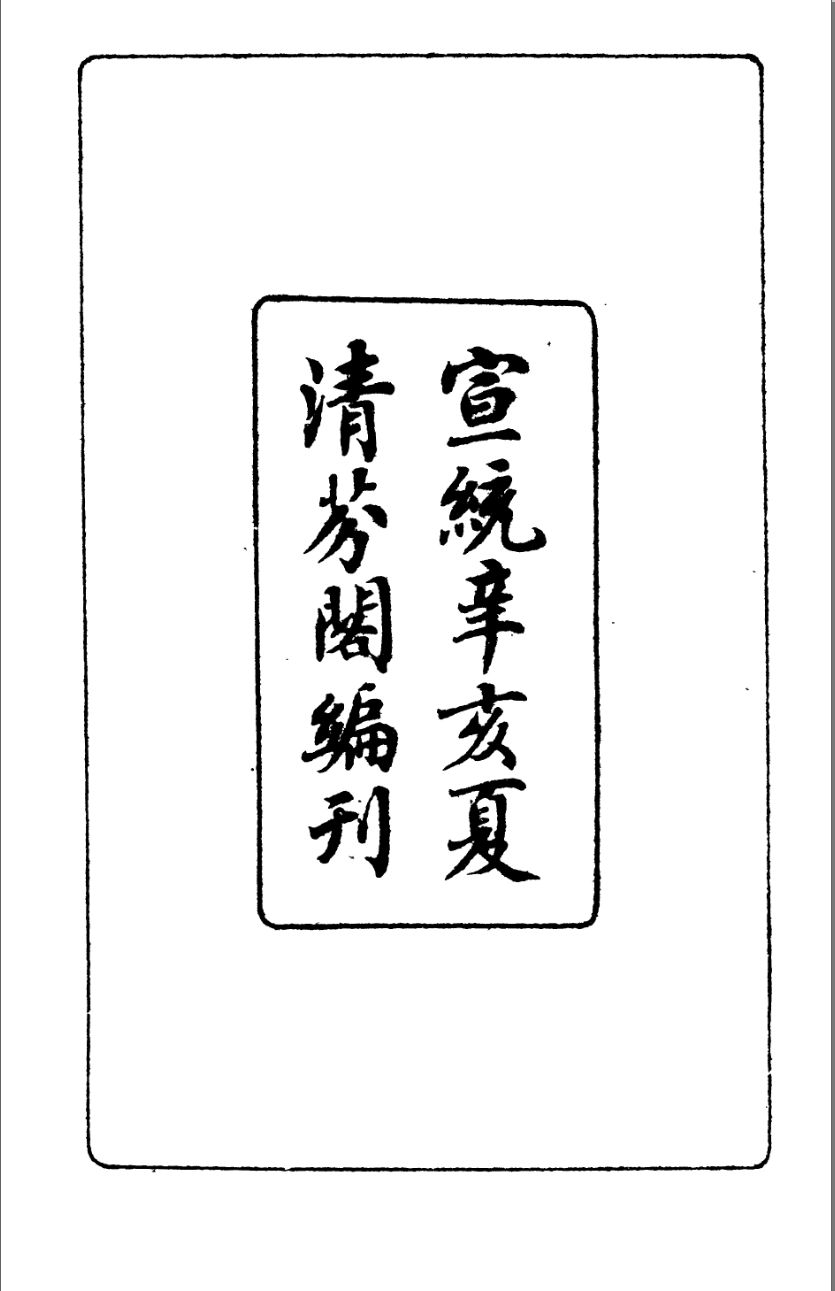 宣統辛亥夏
清芬閣編刊